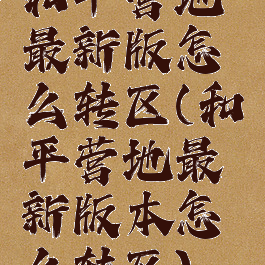 和平营地
最新版怎
么转区(和
平营地最
新版本怎
么转区)